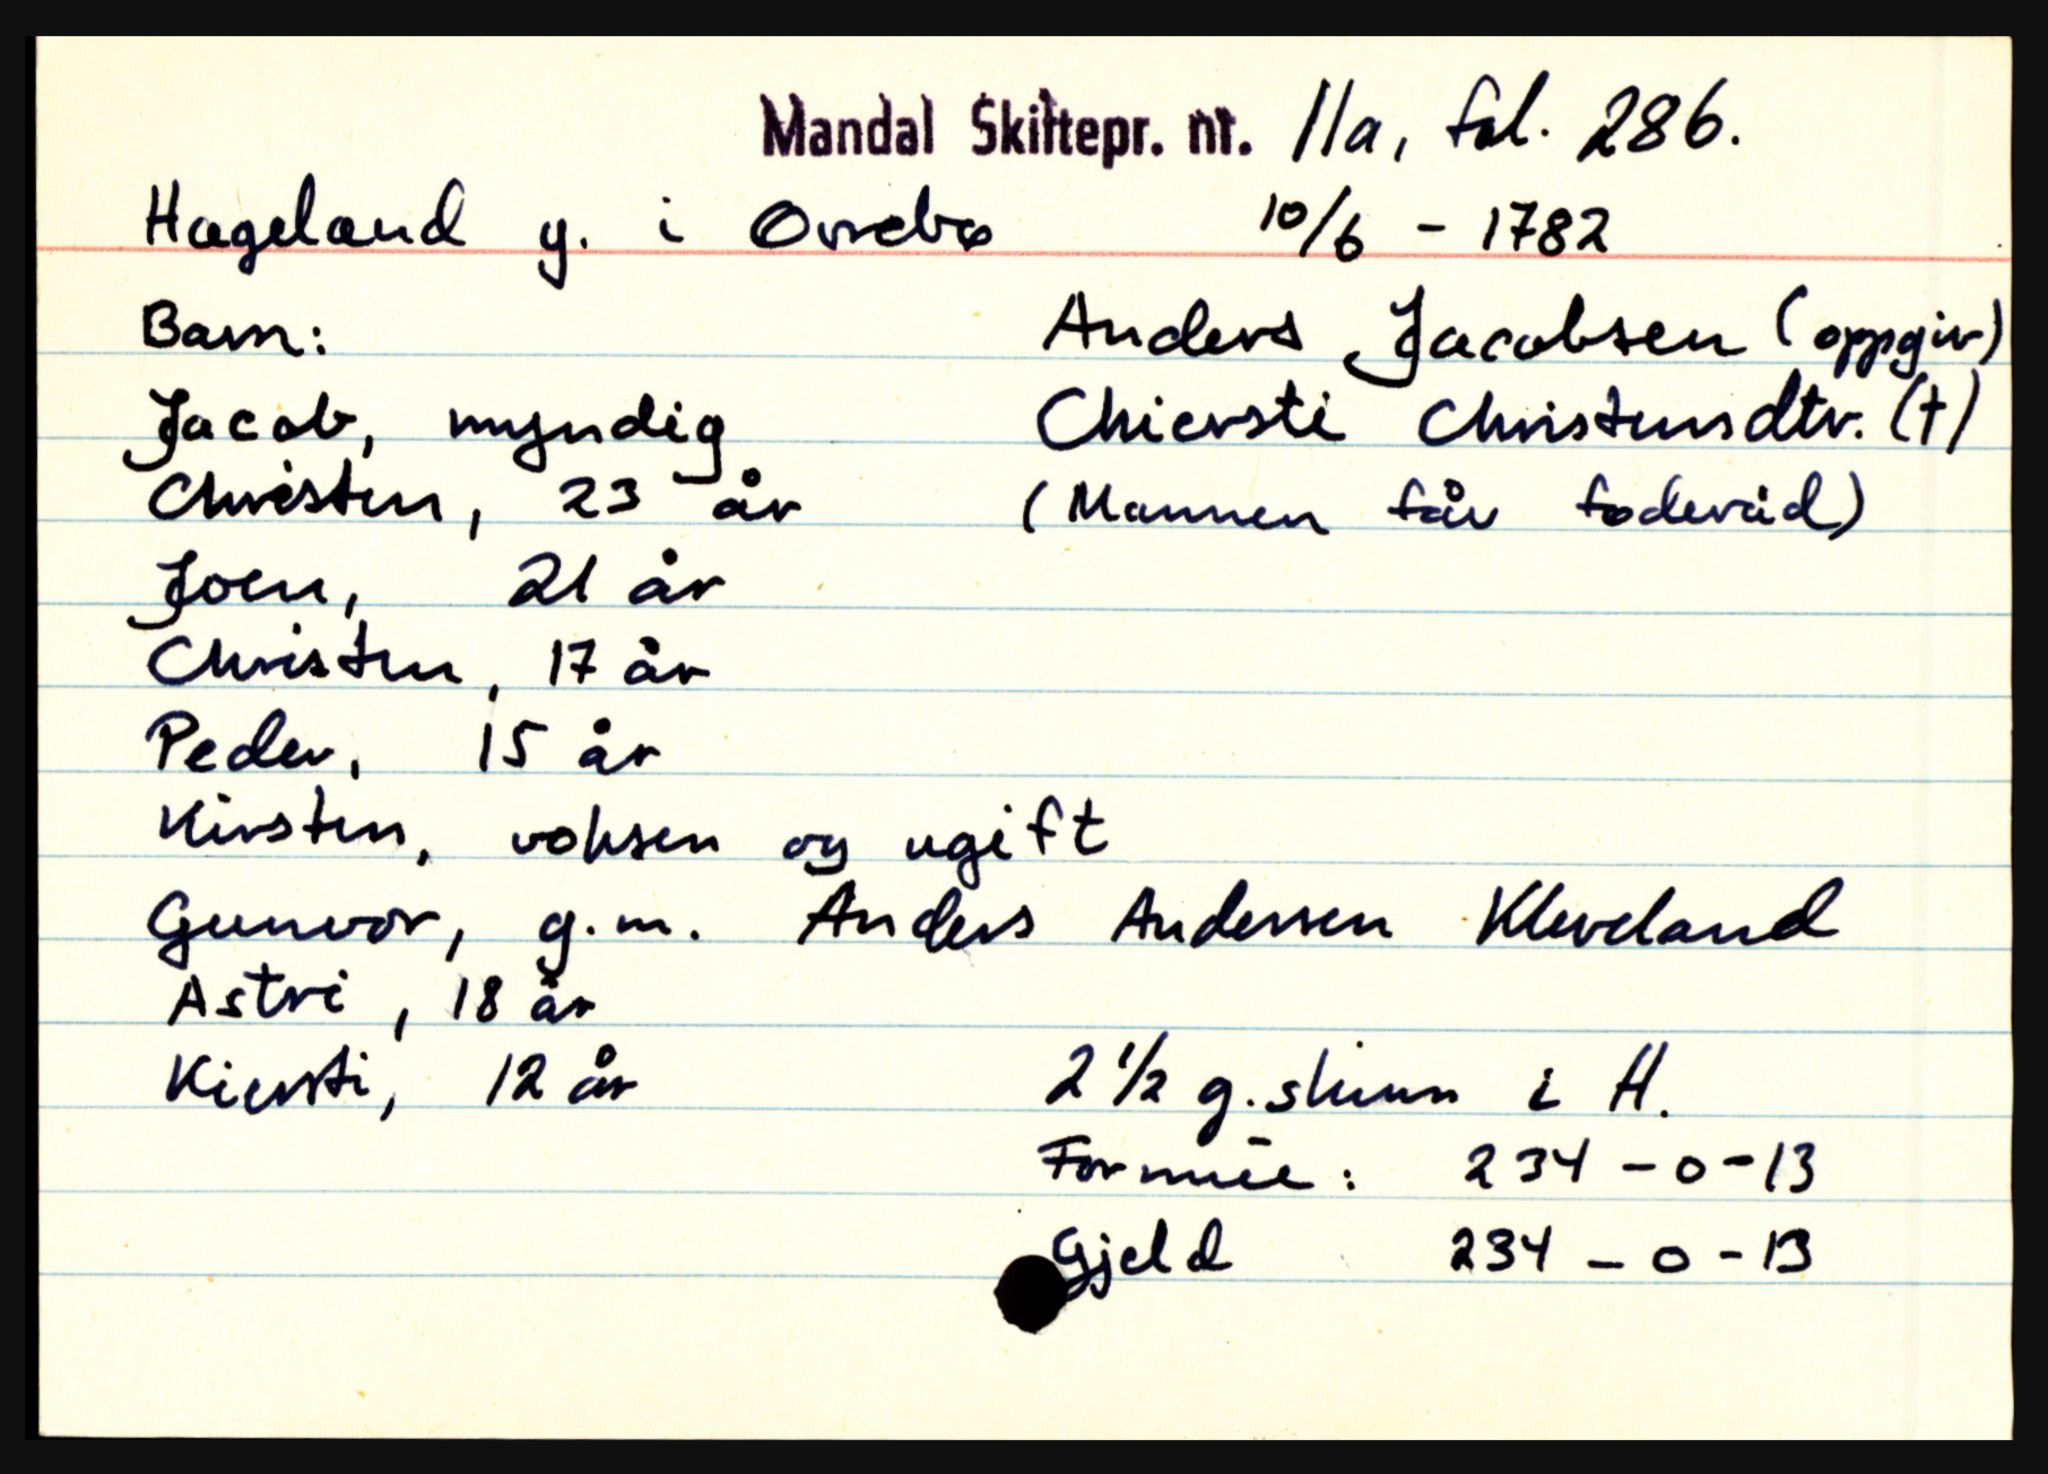 Mandal Skiftepr. nr. 11a, fol. 286.
Hageland y. i Øvrebø 10/6 - 1782
Barn: Anders Jacobsen (oppgir)
Jacob, myndig Chiersti Christensdtr. (†)
Christen, 23 år (Mannen får føderåd)
Joen, 21 år
Christen, 17 år
Peder, 15 år
Kirsten, voksen og ugift
Gunvor, g.m. Anders Andersen Kleveland
Astri, 18 år
Kiersti, 12 år 2 1/2 g. skinn i H.
Formue: 234 - 0 - 13
Gjeld 234 - 0 - 13